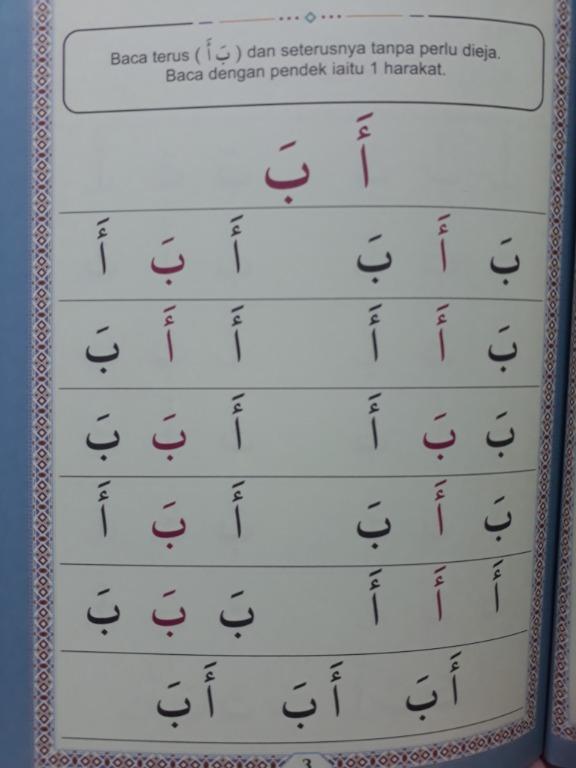 Baca terus ( أَ بَ ) dan seterusnya tanpa perlu dieja.
Baca dengan pendek iaitu 1 harakat.
أَ بَ
بَ أَ بَ أَ بَ أَ
بَ أَ أَ أَ أَ بَ
بَ بَ أَ أَ بَ بَ
بَ أَ بَ أَ بَ أَ
أَ أَ أَ بَ بَ بَ
أَ بَ أَ بَ أَ بَ
3